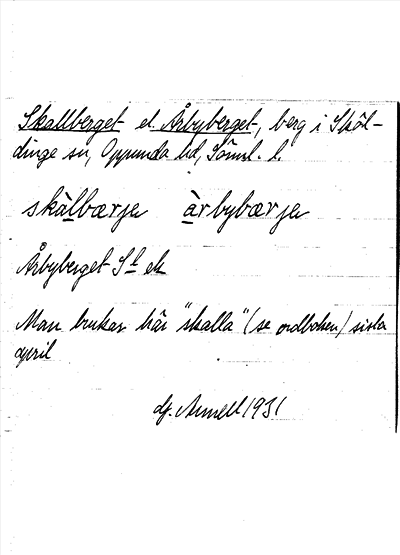 Skallberget el. Årbyberget, berg i Sköl-
dinge sn, Oppunda hd, Söml. l.
skàlbærja àrbybærja
Årbyberget Sl ek
Man brukar här "skalla" (se ordboken) sista
april
af. Arnell 1931